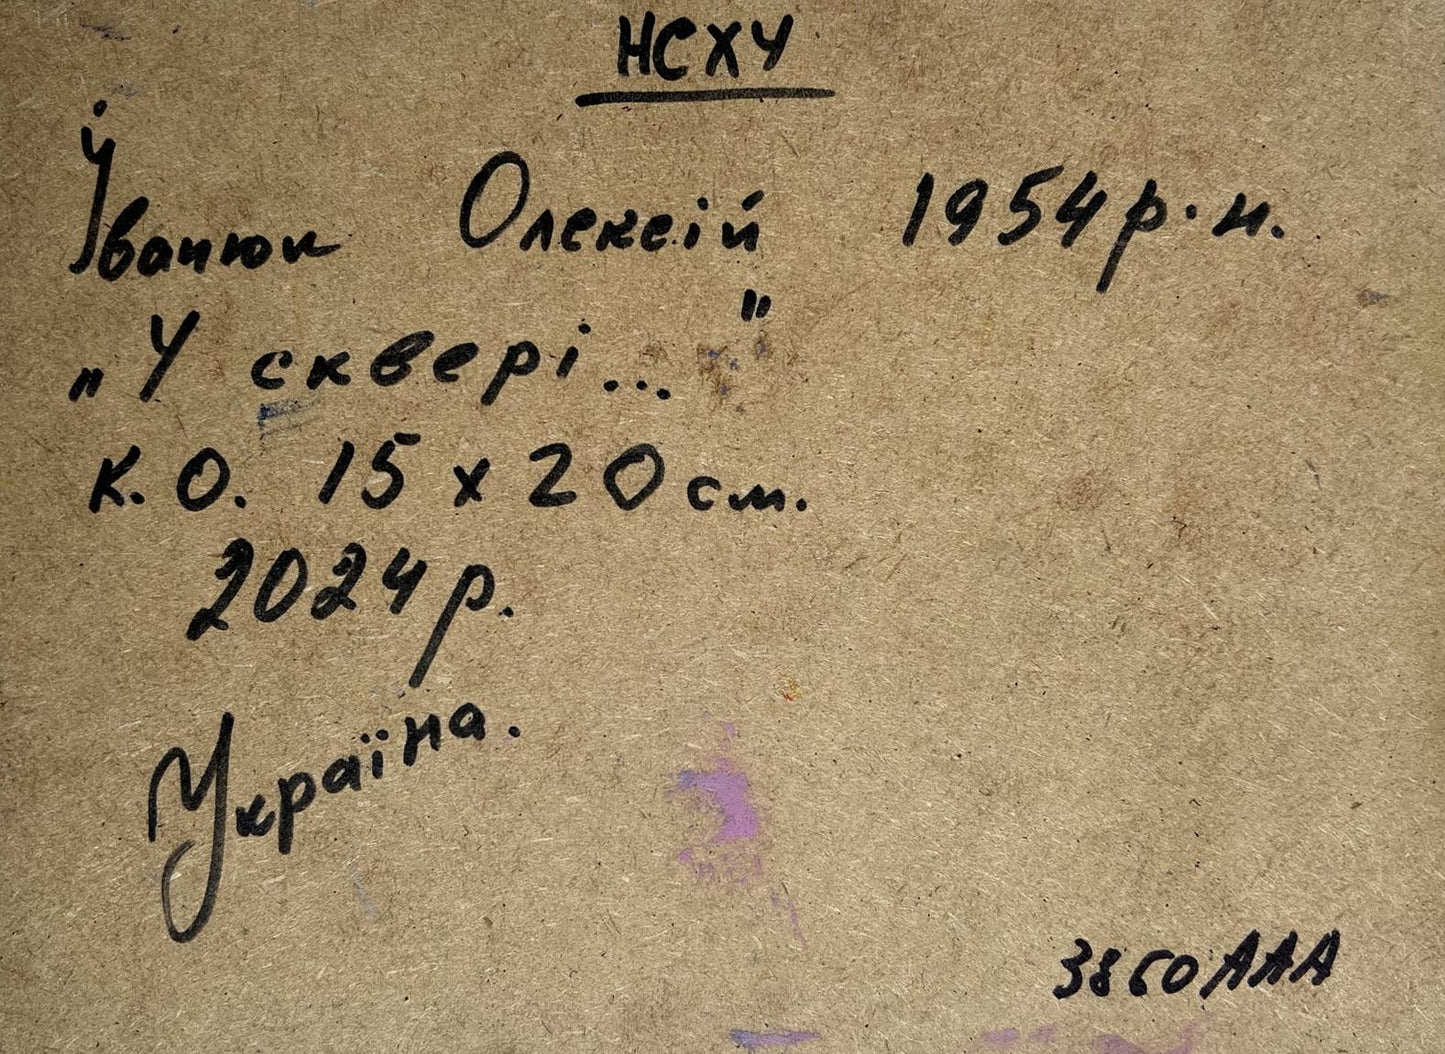 НСХУ
Іванюк Олексій 1954 р. н.
„У сквері..."
к. о. 15 х 20 см.
2024 р.
Україна.
3860 ААА